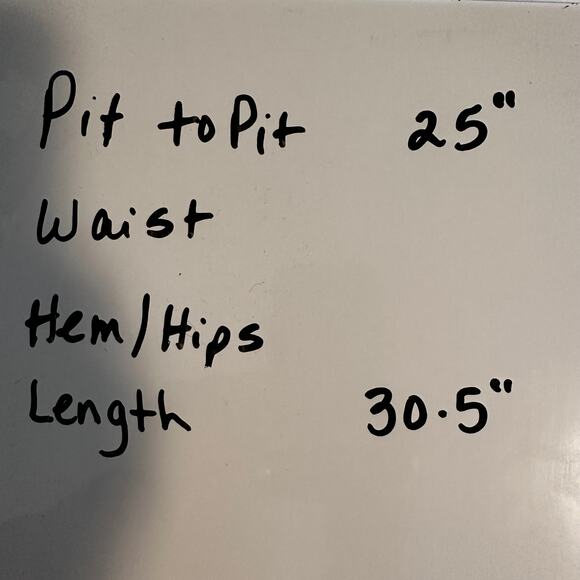 Pit to Pit 25"
Waist
Hem/Hips
Length 30.5"